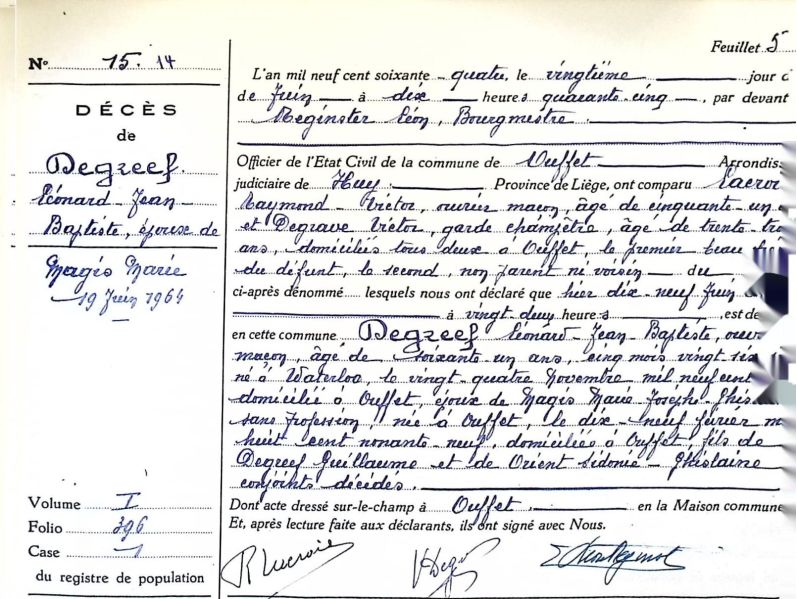 Feuillet 5
N° 15. 14
DÉCÈS
de
Degreef.
Léonard - Jean -
Baptiste, époux de
Magis Marie
19 Juin 1964
Volume I
Folio 396
Case 1
du registre de population
L'an mil neuf cent soixante - quatre, le vingtième jour
de Juin à dix heures quarante-cinq, par devant
Meginster Léon, Bourgmestre.
Officier de l'Etat Civil de la commune de Ouffet Arrondis
judiciaire de Huy. Province de Liège, ont comparu Lacroi
Raymond - Victor, ouvrier maçon, âgé de cinquante - un
et Degrave Victor, garde champêtre, âgé de trente-tro
ans, domiciliés tous deux à Ouffet, le premier beau
du défunt, le second, non parent ni voisin du
ci-après dénommé lesquels nous ont déclaré que hier dix-neuf Juin
à vingt deux heures est dé
en cette commune Degreef Léonard - Jean - Baptiste, ouv
maçon, âgé de soixante un ans, cinq mois vingt
né à Waterloo, le vingt-quatre Novembre mil neuf cent
domicilié à Ouffet, époux de Magis Marie Joseph-Ghisla
sans profession, née à Ouffet, le dix-neuf février m
huit cent nonante-neuf, domiciliée à Ouffet, fils de
Degreef Guillaume et de Orient Sidonie - Ghislaine
conjoints décédés.
Dont acte dressé sur-le-champ à Ouffet. en la Maison commune
Et, après lecture faite aux déclarants, ils ont signé avec Nous.
R Lacroix